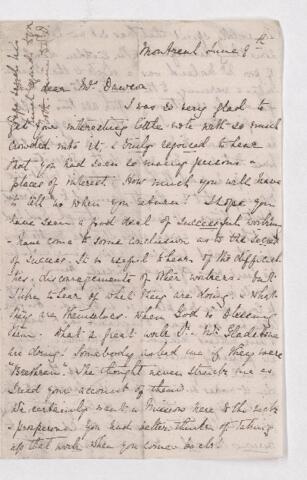 Montreal June 9th
dear Mrs Dawson
I was so very glad to
get your interesting little note with so much
crowded into it, & truly rejoiced to hear
that you had seen so many persons &
places of interest. How much you will have
to tell us when you return! I hope you
have seen a good deal of successful workers
& have come to some conclusion as to the secret
of success. It is useful to hear of the difficul
ties, discouragements of other workers. but
to hear of what they are doing, & what
they are themselves. when God is blessing
them. What a great work Dr. Mrs Gladstone
are doing! Somebody asked me if they were
"Brethren". The thought never struck me as
I read your account of them.
We certainly want a Missions here to the
prosperous. You had better think of taking
up that work when you come back.